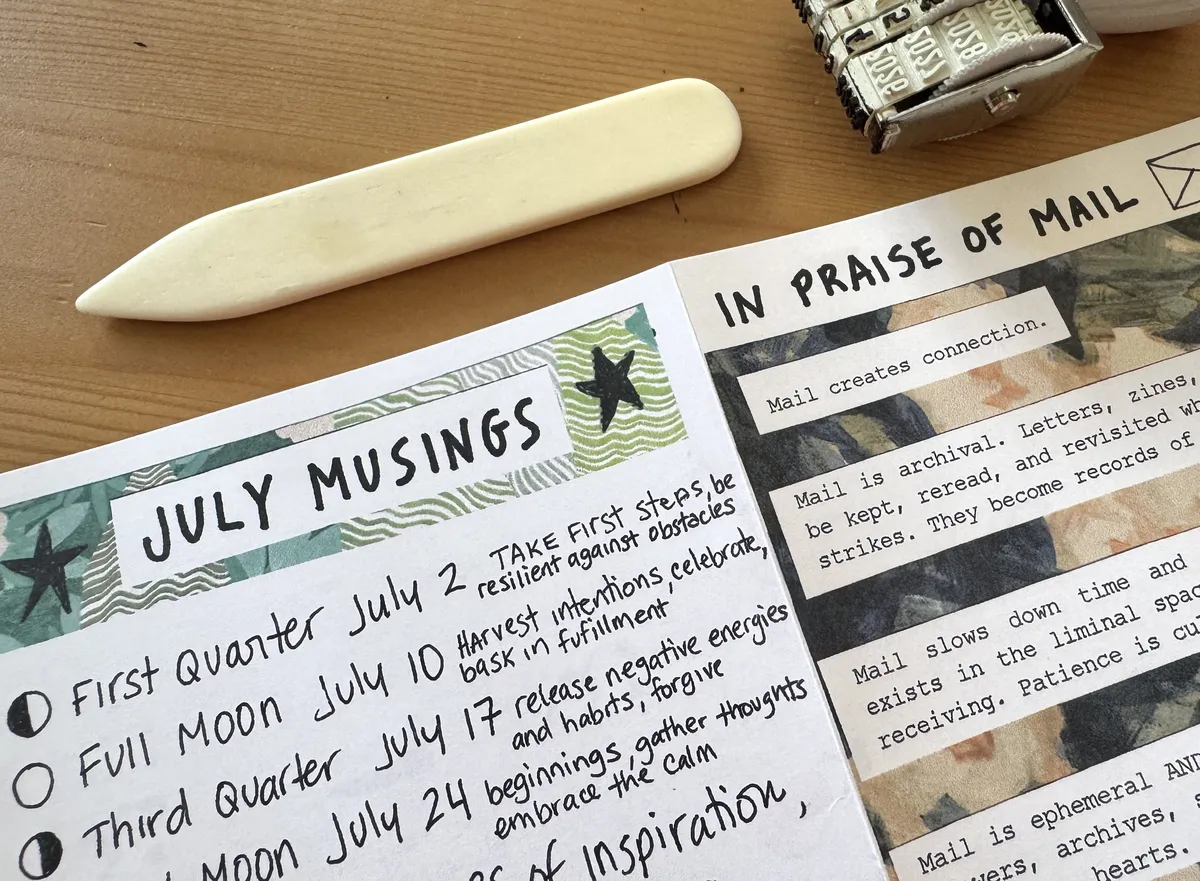 JULY MUSINGS
First Quarter July 2 TAKE First Steps, be
resilient against obstacles
Full Moon July 10 Harvest intentions, celebrate,
bask in fufillment
Third Quarter July 17 release negative energies
and habits, forgive
Moon July 24 beginnings, gather thoughts
embrace the calm
of inspiration,
IN PRAISE OF MAIL
Mail creates connection.
Mail is archival. Letters, zines,
be kept, reread, and revisited
strikes. They become records of
Mail slows down time and
exists in the liminal
receiving. Patience is
Mail is ephemeral AND
archives,
hearts.
2026
2027
2028